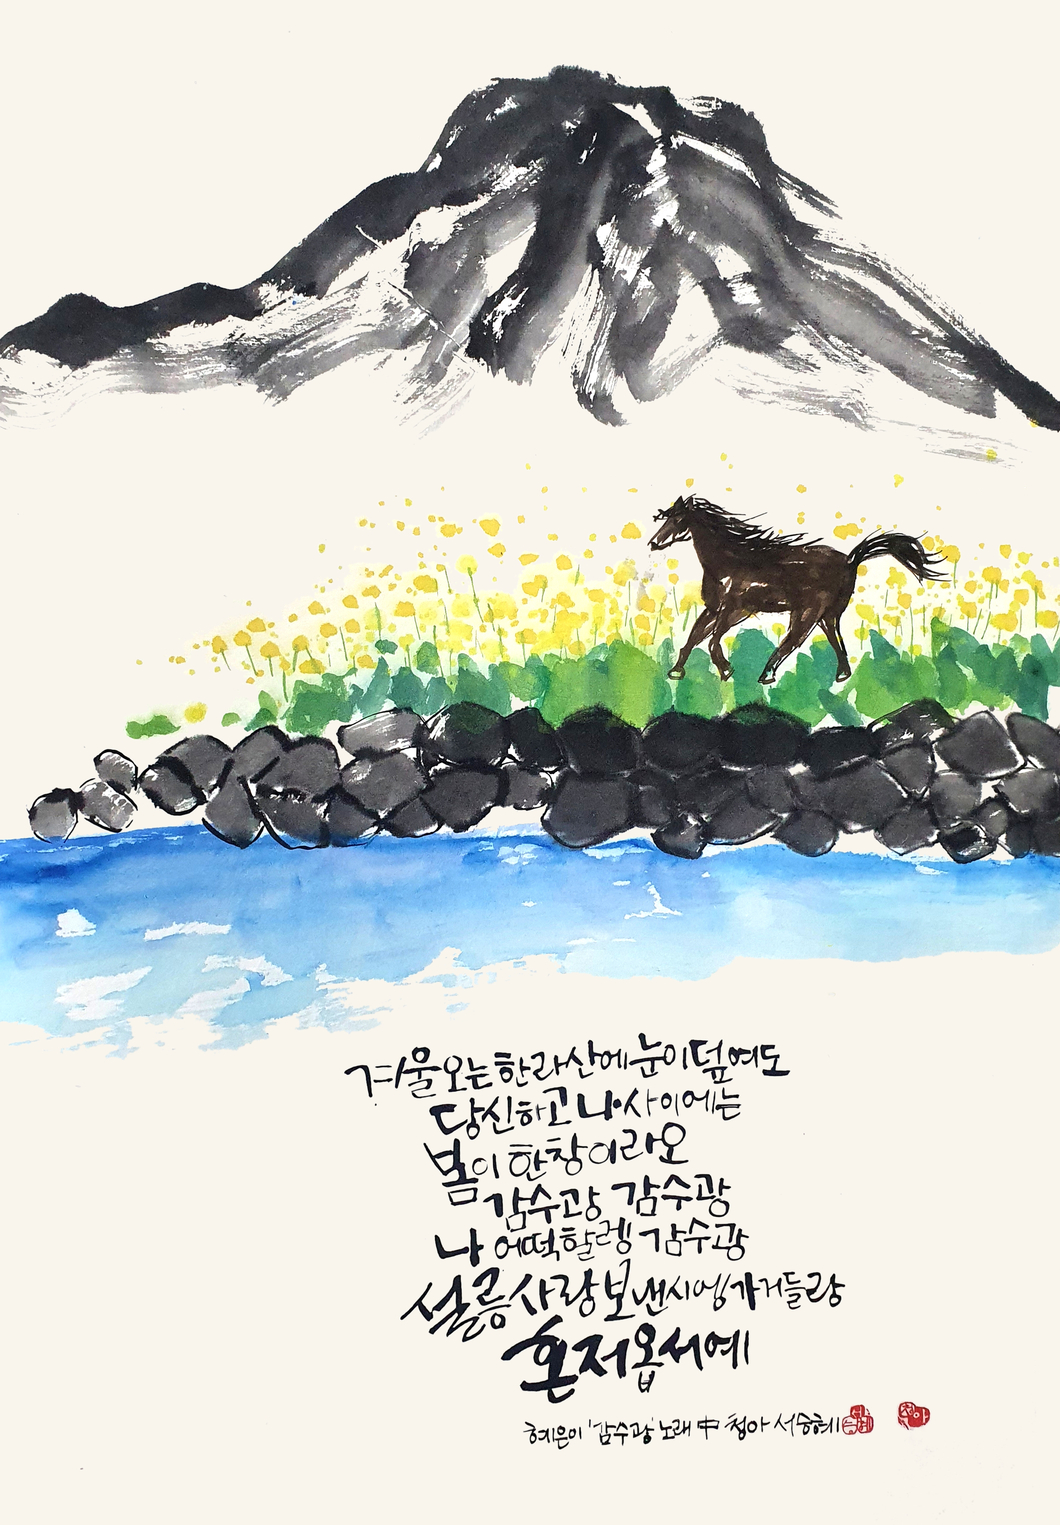 겨울오는 한라산에 눈이 덮여도
당신하고 나 사이에는
봄이 한창이라오
감수광 감수광
나 어떡할렝 감수광
설릉사랑 보낸시엥 가거들랑
혼저옵서예
혜은이 '감수광' 노래 中 청아 서승혜
서승혜
청아